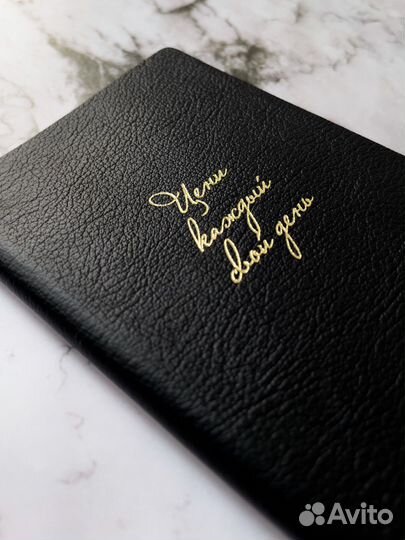 Цени
каждый
свой день
Avito